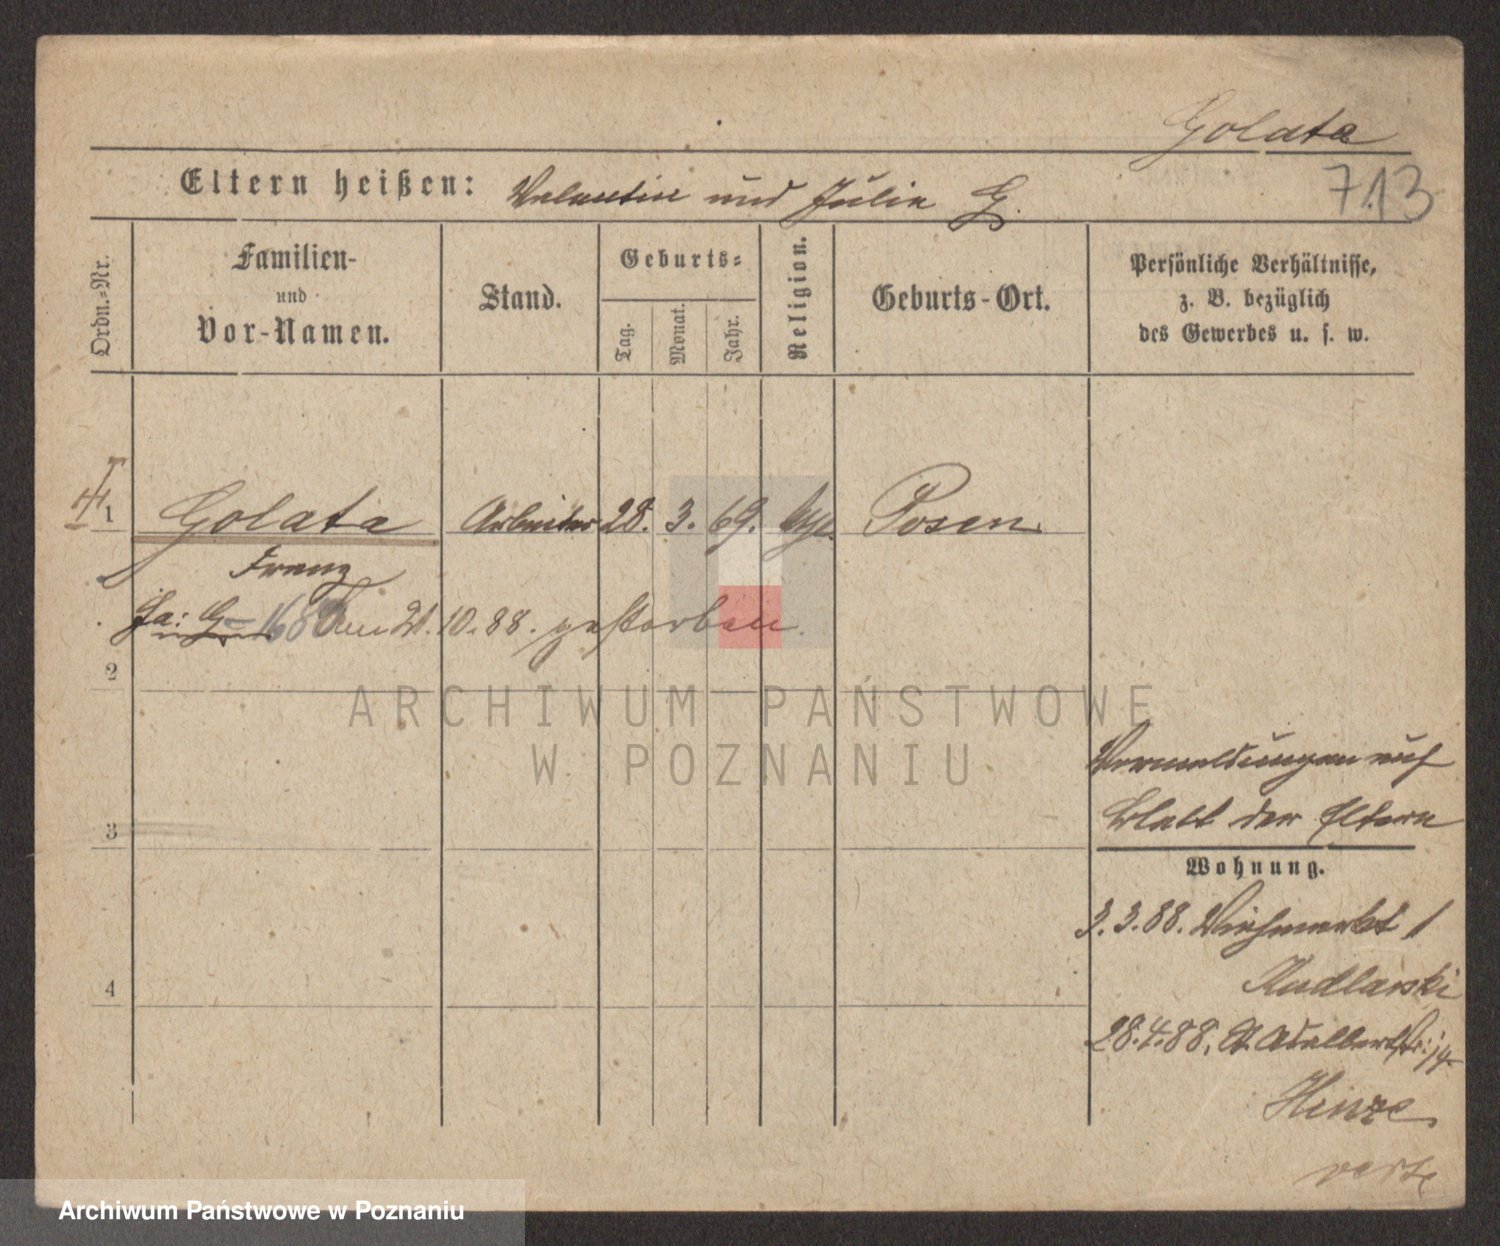 Golata
713
Eltern heißen: Valentin und Julie G.
Ordn.-Nr.
Familien-
und
Vor-Namen.
Stand.
Geburts-
Tag.
Monat.
Jahr.
Religion.
Geburts-Ort.
Persönliche Verhältnisse,
z. B. bezüglich
des Gewerbes u. s. w.
1 Golata Arbeiter 28. 3. 69. Posen
Franz
21.10.88. gestorben.
2
ARCHIWUM PAŃSTWOWE
W POZNANIU
Vormeldungen auf
Blatt der Eltern
3
Wohnung.
3.3.88. Viehmarkt 1
Kudlarski
4
28.4.88. St. Adalbertstr. 14
Hinze
verte
Archiwum Państwowe w Poznaniu